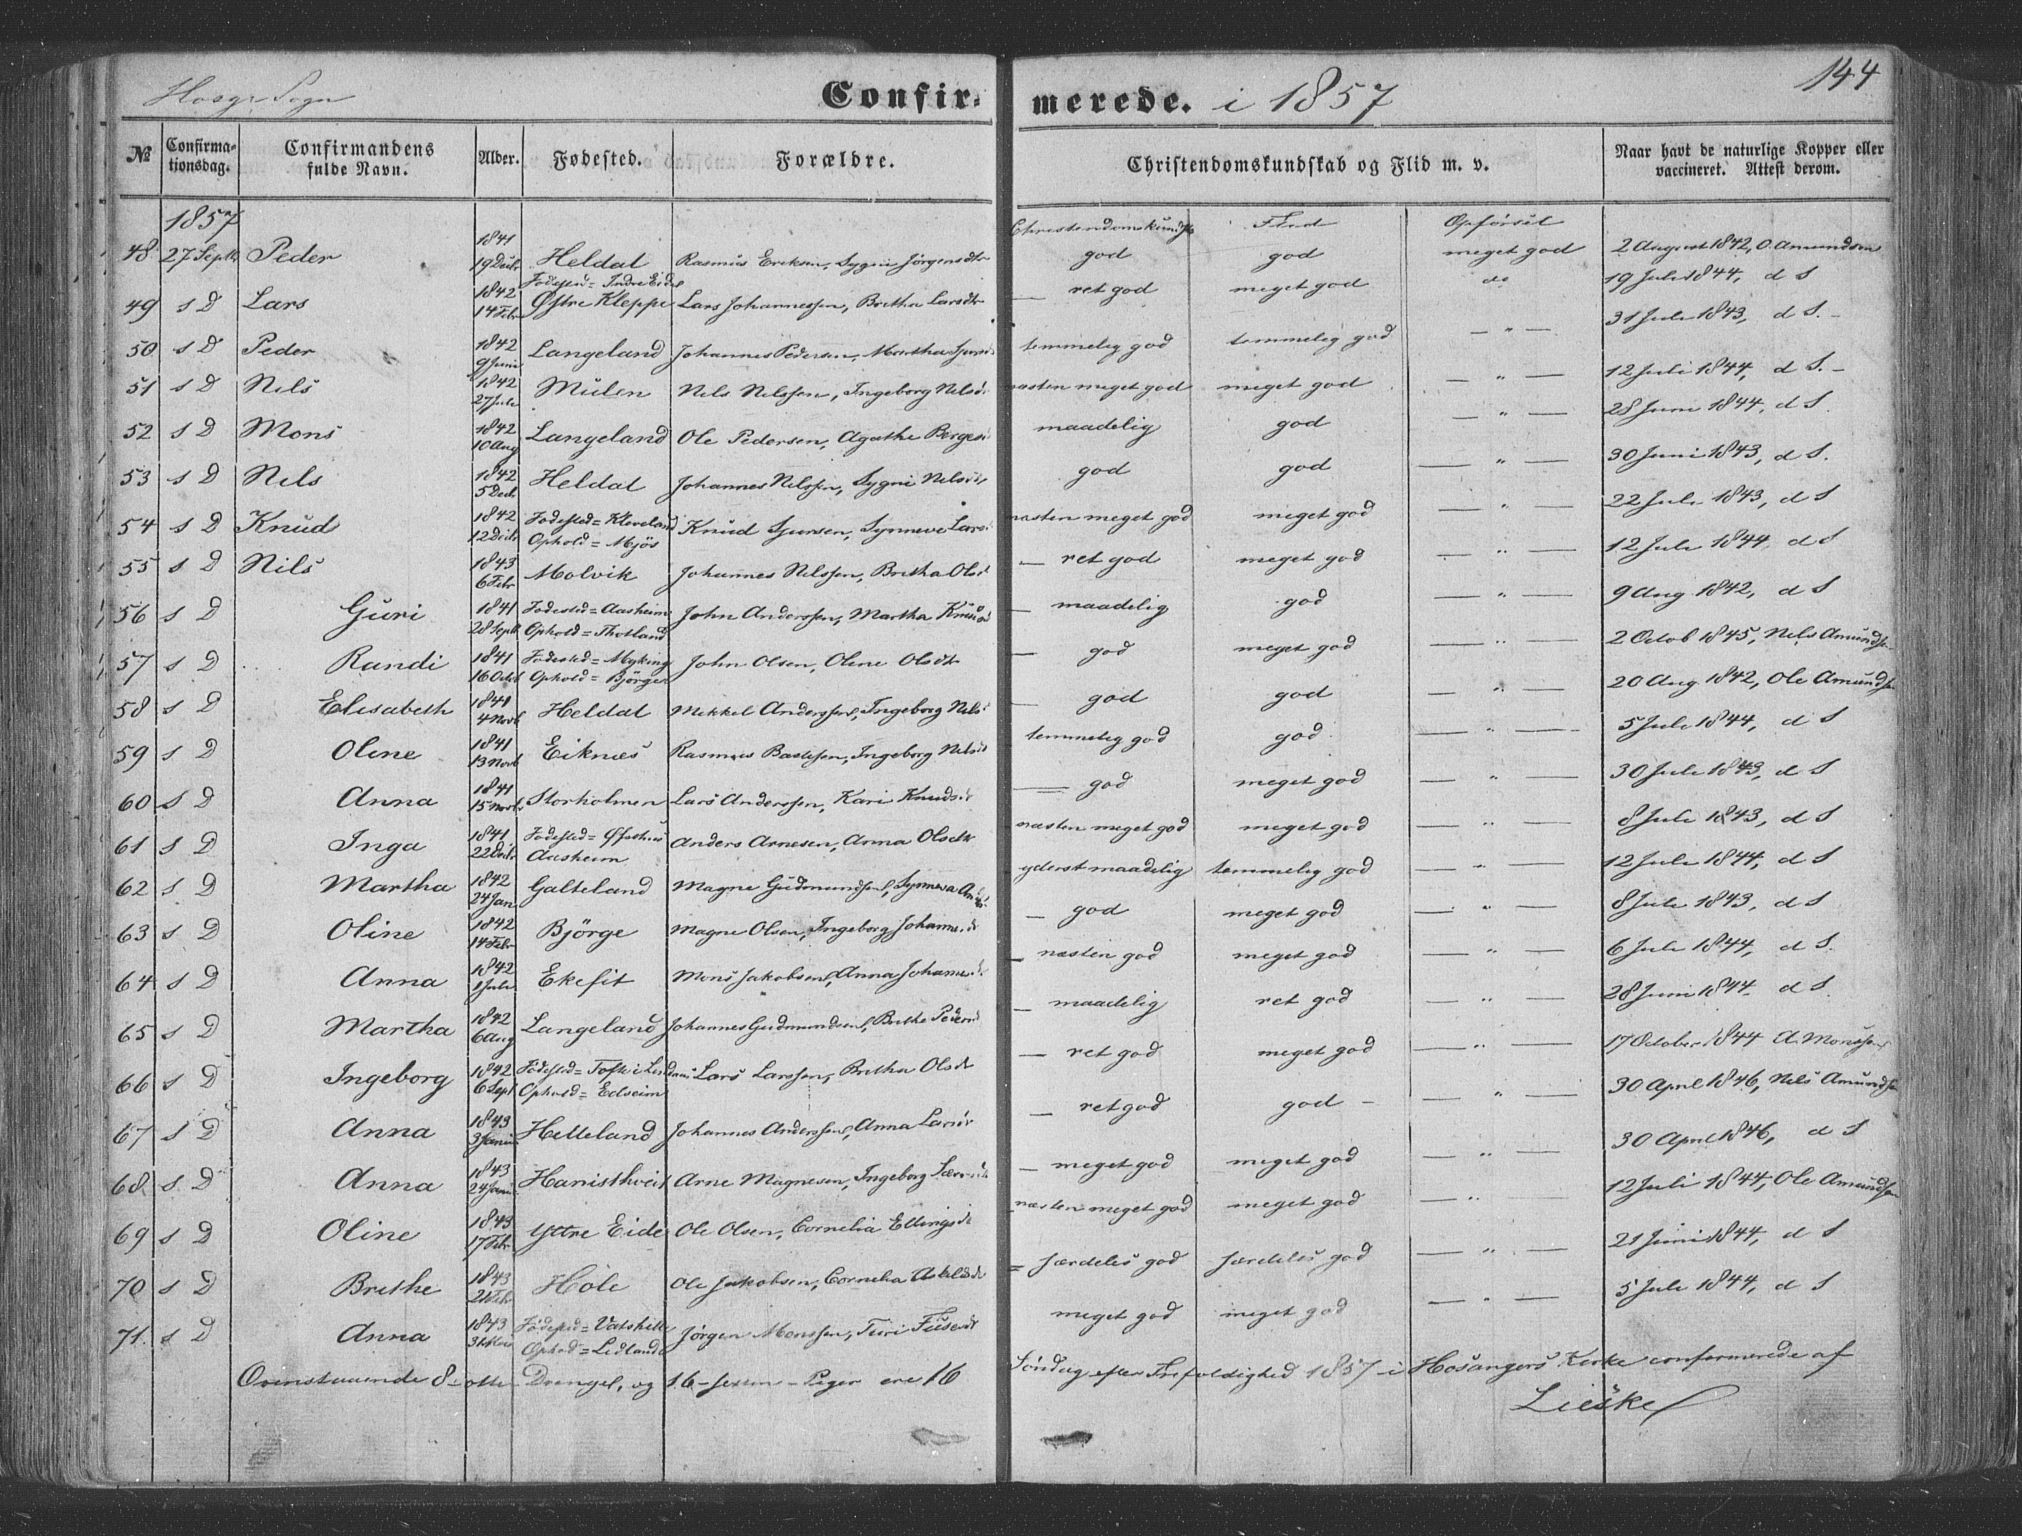 Hosanger Sogn Confirmerede. i 1857 144
№ Confirmationsdag. Confirmandens fulde Navn. Alder. Fødested. Forældre. Christendomskundskab og Flid m. v. Naar havt de naturlige Kopper eller vaccineret. Attest derom.
1857 Christendomskundsk Flid Opførsel
48 27 Septb Peder 1841 19 Decbr Heldal Rasmus Ericksen, Sygni Jørgensdtr god god meget god 2 August 1842, O. Amundsen
49 s D Lars 1842 14 Febr Fødested = Indre Eidet Østre Kleppe Lars Johannessen, Bretha Larsdtr — ret god meget god do 19 Juli 1844, d S
50 s D Peder 1842 9 Juni Langeland Johannes Pedersen, Martha temmelig god temmelig god — " — 31 Juli 1843, d S. –
51 s D Nils 1842 27 Juli Mulen Nels Nelssen, Ingeborg Nelsd: næsten meget god meget god — " — 12 Juli 1844, d S. –
52 s D Mons 1842 10 Aug Langeland Ole Pedersen, Agathe Berges maadelig god — " — 28 Juni 1844, d S.
53 s D Nils 1842 5 Decb Heldal Johannes Nilssen, Sygni Nelsd god god — " — 30 Juni 1843, d S.
54 s D Knud 1842 12 Decbr Fødested = Kleveland Ophold = Mjøs Knud Sjursen, Synneve Lars næsten meget god meget god — " — 22 Juli 1843, d S
55 s D Nils 1843 6 Febr Molvik Johannes Nelssen, Bretha Olsd — ret god meget god — " — 12 Juli 1844 d S
56 s D Guri 1841 28 Septb Fødested = Aasheim Ophold = Thotland John Anderssen, Martha Knudsd — maadelig god — " — 9 Aug 1842, d S
57 s D Randi 1841 16 Octob Fødested = Myking Ophold = Björge John Olsen, Oline Olsdtr — god meget god — " — 2 Octob 1845, Nels Amundsen
58 s D Elisabeth 1841 4 Novb Heldal Mekkel Anderssen, Ingeborg Nels — god god — " — 20 Aug 1842, Ole Amundsen
59 s D Oline 1841 13 Novb Eiknæs Rasmus , Ingeborg Nelsd temmelig god god — " — 5 Juli 1844, d S
60 s D Anna 1841 15 Novbr Storholmen Lars Anderssen, Kari Knudsd — god meget god — " — 30 Juli 1843, d S
61 s D Inga 1841 22 Decbr Fødested = Aasheim Anders Arnesen, Anna Olsdtr næsten meget god meget god — " — 8 Juli 1843, d S
62 s D Martha 1842 24 Jan Galteland Magne Gudmundsen, Synneva yderst maadelig temmelig god — " — 12 Juli 1844, d S
63 s D Oline 1842 14 Febr Björge Magne Olsen, Ingeborg Johannesd — god meget god — " — 8 Juli 1843, d S
64 s D Anna 1842 1 Juli Ekefit Mons Jakobsen, Anna Johannesd — næsten god meget god — " — 6 Juli 1844, d S.
65 s D Martha 1842 6 Aug Langeland Johannes Gudmundsen, Brithe Pedersd — maadelig ret god — " — 28 Juni 1844 d S
66 s D Ingeborg 1842 6 Sept Fødested = Ophold = Edseim Lars Larssen, Bretha Olsdt — ret god meget god — " — 17 October 1844 A. Monssen
67 s D Anna 1843 3 Januar Helleland Johannes Anderssen, Anna Larsd — ret god god — " — 30 April 1846, Nels Amundsen
68 s D Anna 1843 24 Janu Hanisthveit Arne Magnesen, Ingeborg — meget god meget god — " — 30 April 1846, d S
69 s D Oline 1843 17 Febr Yttre Eide Ole Olsen, Cornelia Ellingsdt næsten meget god meget god — " — 12 Juli 1844, Ole Amundsen
70 s D Brithe 1843 Hole Ole Jakobsen, Cornelia Askelsdt = særdeles god særdeles god — " — 21 Juni 1844, d S
71. s D Anna 1843 Fødested = Vatshelle Ophold = Lidland Jørgen Monssen, Turi meget god meget god — " — 5 Juli 1844, d S
Ovenstaaende 8 – otte – Drenge, og 16 – sexten – Piger ere 16 Söndag efter Trefoldighed 1857 i Hosangers Kirke confirmerede af
Lieske